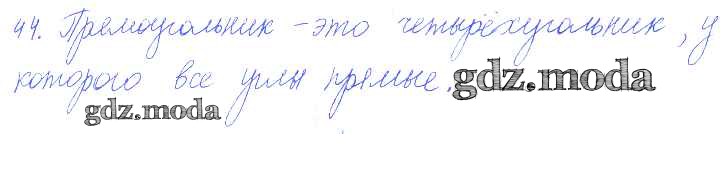 44. Прямоугольник - это четырёхугольник, у
которого все углы прямые. gdz.moda
gdz.moda